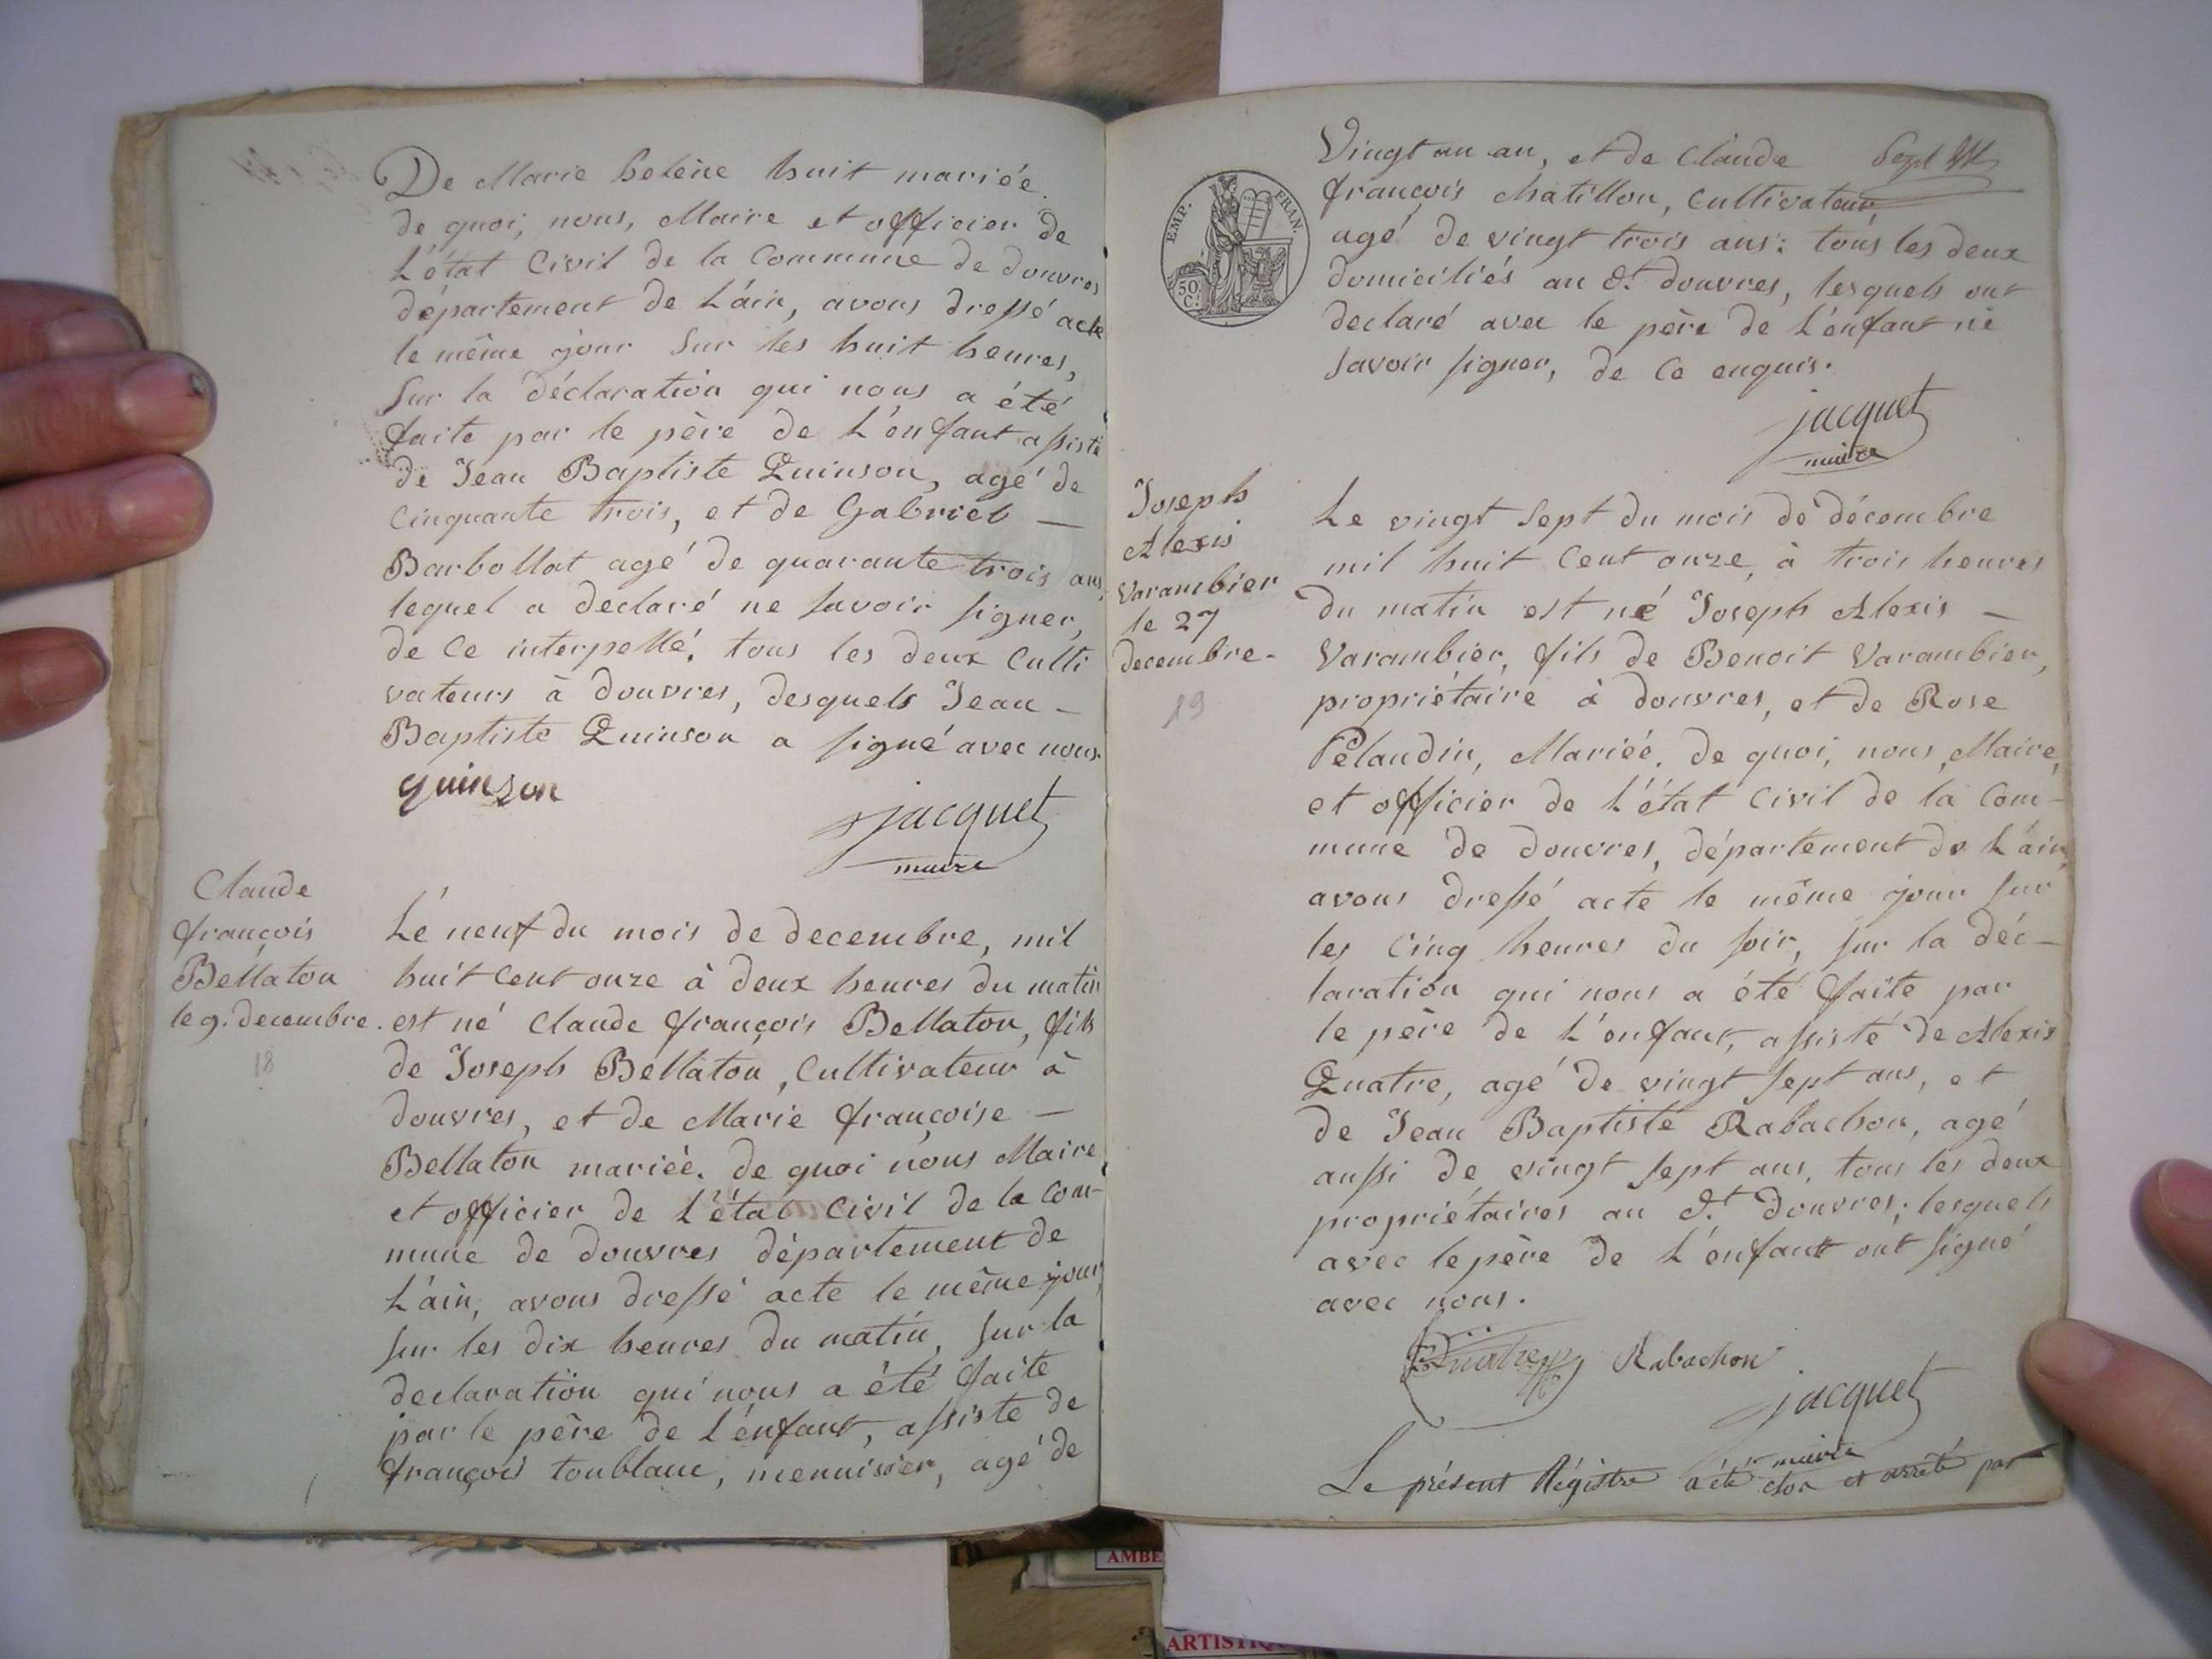 De Marie helène huit mariée.
de quoi, nous, Maire et officier de
L'état Civil de la Commune de douvres
département de L'ain, avons dressé acte
le même jour Sur les huit heures,
Sur la déclaration qui nous a été
faite par le père de L'enfant assisté
de Jean Baptiste Quinson, agé de
Cinquante trois, et de Gabriel —
Barbollat agé de quarante trois ans,
lequel a declaré ne savoir signer,
de Ce interpellé, tous les deux Culti
vateurs à douvres, desquels Jean —
Baptiste Quinson a signé avec nous.
quinson
jacquet
maire
Claude
françois
Bellaton
le 9. decembre.
18
Le neuf du mois de decembre, mil
huit Cent onze à deux heures du matin
est né Claude françois Bellaton, fils
de Joseph Bellaton, Cultivateur à
douvres, et de Marie françoise —
Bellaton mariée. de quoi nous Maire
et officier de L'état Civil de la Com-
mune de douvres département de
L'ain, avons dressé acte le même jour,
sur les dix heures du matin, sur la
declaration qui nous a été faite
par le père de L'enfant, assisté de
françois toublanc, menuisier, agé de
EMP. FRAN.
50 C.
Vingt un an, et de Claude
Sept
françois chatillon, Cultivateur,
agé de vingt trois ans: tous les deux
domiciliés au dt. douvres, lesquels ont
declaré avec le père de L'enfant ne
savoir signer, de Ce enquis.
jacquet
maire
Joseph
Alexis
Varambier
le 27
decembre.
19
Le vingt Sept du mois de décembre
mil huit Cent onze, à trois heures
du matin est né Joseph Alexis —
Varambier, fils de Benoit Varambier,
propriétaire à douvres, et de Rose
Pélandin, Mariée. de quoi, nous, Maire,
et officier de L'état Civil de la Com-
mune de douvres, département de L'ain,
avons dressé acte le même jour sur
les Cinq heures du soir, sur la déc-
laration qui nous a été faite par
le père de L'enfant, assisté de Alexis
Quatre, agé de vingt sept ans, et
de Jean Baptiste Rabachon, agé
aussi de vingt sept ans, tous les deux
propriétaires au dt. Douvres; lesquels
avec le père de L'enfant ont signé
avec nous.
Quatre Rabachon
jacquet
maire
Le présent Régistre a été clos et arrêté par
AMBE
ARTISTIQ